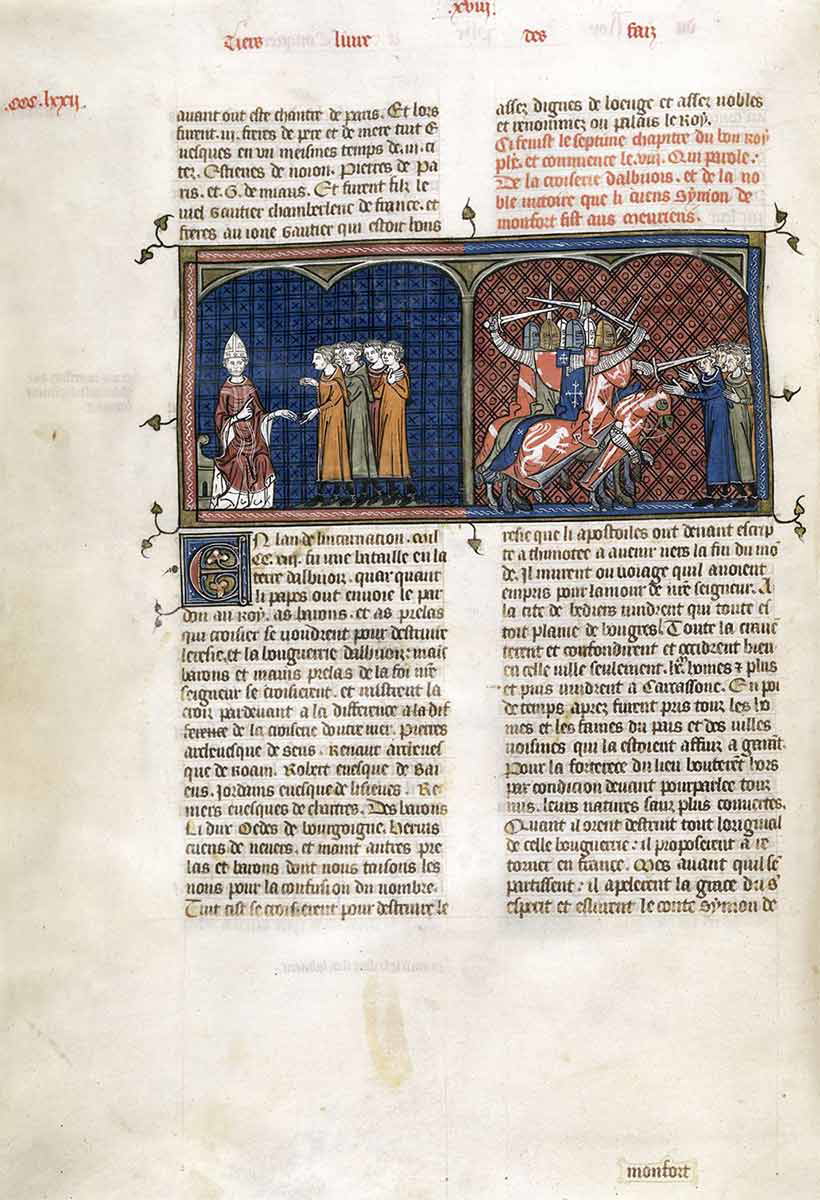 .xviij.
Tiers liure des faiz
.CCC.lxxij.
auant out este chantre de paris. Et lors
furent .iij. freres de pere et de mere tuit E
uesques en vn meismes temps de .iij. ci
tez. Estienes de noion. Pierres de pa
ris. et .G. de miaus. Et furent filz le
uiel Gautier chamberlenc de france. et
freres au ione Gautier qui estoit bons
assez dignes de loenge et assez nobles
et renommez ou palais le Roy.
Ci fenist le septime chapitre du bon Roy
phe. et commence le .viij. Qui parole:
De la croiserie dalbiiois. et de la no
ble uictoire que li cuens Symon de
monfort fist aus
En lan de lincarnacion .
CC. fu une bataille en la
terre dalbiiois. quar quant
li papes out enuoie le par
don au Roy. as barons. et as prelas
qui croisier se uoudrent pour destruire
leresie. et la bouguerie dalbiiois: maic
barons et mains prelas de la foi nre
seigneur se croisierent. et mistrent la
croiz par deuant a la difference a la dif
ference de la croiserie doutremer. Pierres
arceuesque de sens. Renaut arceues
que de Roam. Robert euesque de Bai
eus. Jordains euesque de lisieues. Re
niers euesques de chartres. Des barons
Li dux Oedes de bourgoigne. Heruis
cuens de neuers. et maint autres pre
las et barons dont nous taisons les
nons pour la confusion du nombre.
Tuit cist se croisierent pour destruire le
resie que li apostoiles out deuant escrip
te a thimotee a auenir uers la fin du mo
de. Il murent ou uoiage quil auoient
empris pour lamour de nre seigneur. A
la cite de bediers uindrent qui toute es
toit plaine de bougres. Toute la
et confondirent et occidrent bien
en celle ville seulement. homes et plus
et puis uindrent a Carcassone. En poi
de temps aprez furent pris touz les ho
mes et les fames du pais et des villes
uoisines qui la estoient affui a garat.
Pour la forterece du lieu bouterent hors
par condicion deuant pourparlee touz
nus. leurs natures sanz plus couuertes.
Quant il orent destruit tout lorigueil
de celle bouguerie: il proposerent a re
torner en france. Mes auant quil se
partissent: il apelerent la grace du s
esperit et eslurent le conte Symon de
monfort